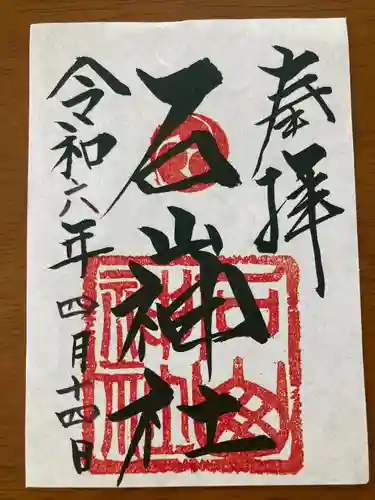 奉拝
石神社
令和六年四月十四日